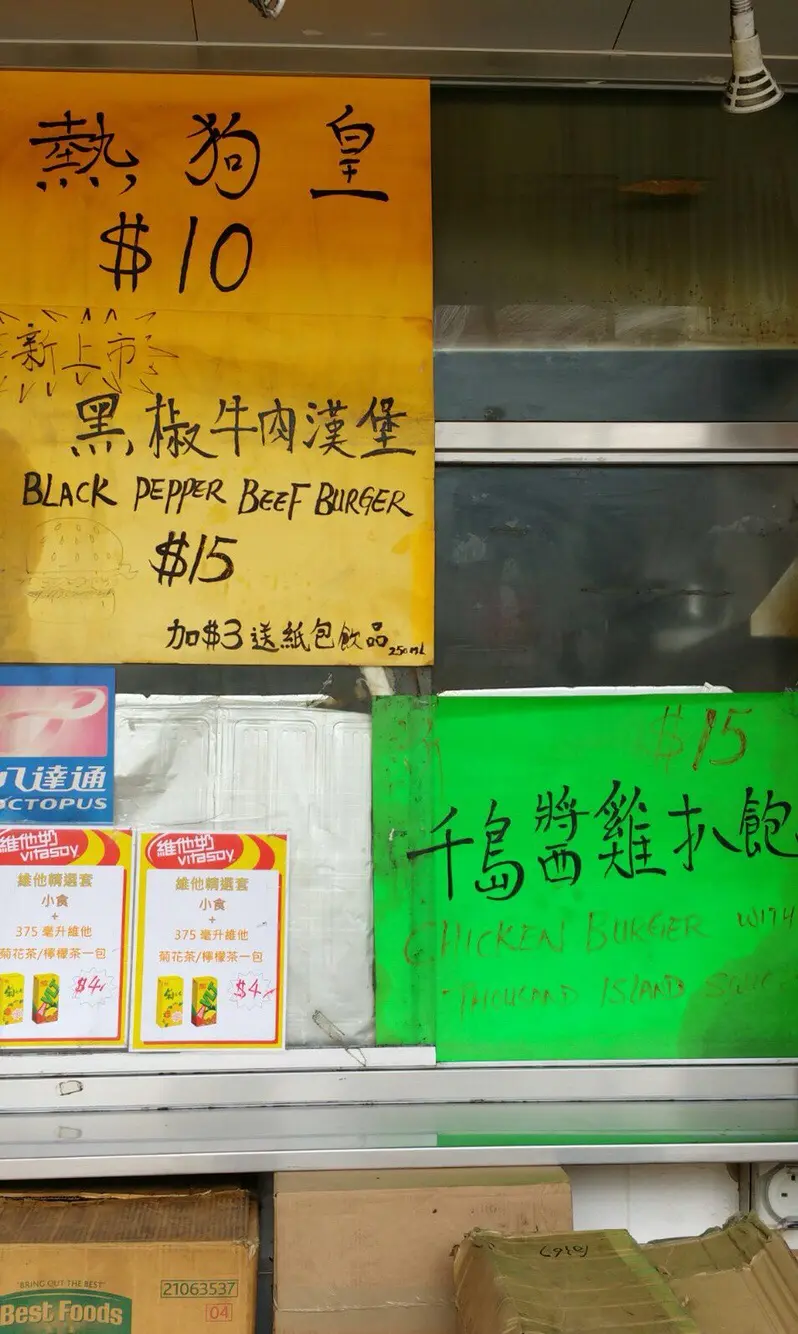 熱狗皇
$10
新上市
黑椒牛肉漢堡
BLACK PEPPER BEEF BURGER
$15
加$3送紙包飲品 250ml
八達通
OCTOPUS
維他奶
VITASOY
維他精選套
小食
+
375 毫升維他
菊花茶/檸檬茶一包
$4
維他奶
VITASOY
維他精選套
小食
+
375 毫升維他
菊花茶/檸檬茶一包
$4
$15
千島醬雞扒飽
CHICKEN BURGER WITH
THOUSAND ISLAND
"BRING OUT THE BEST"
Best Foods
21063537
04